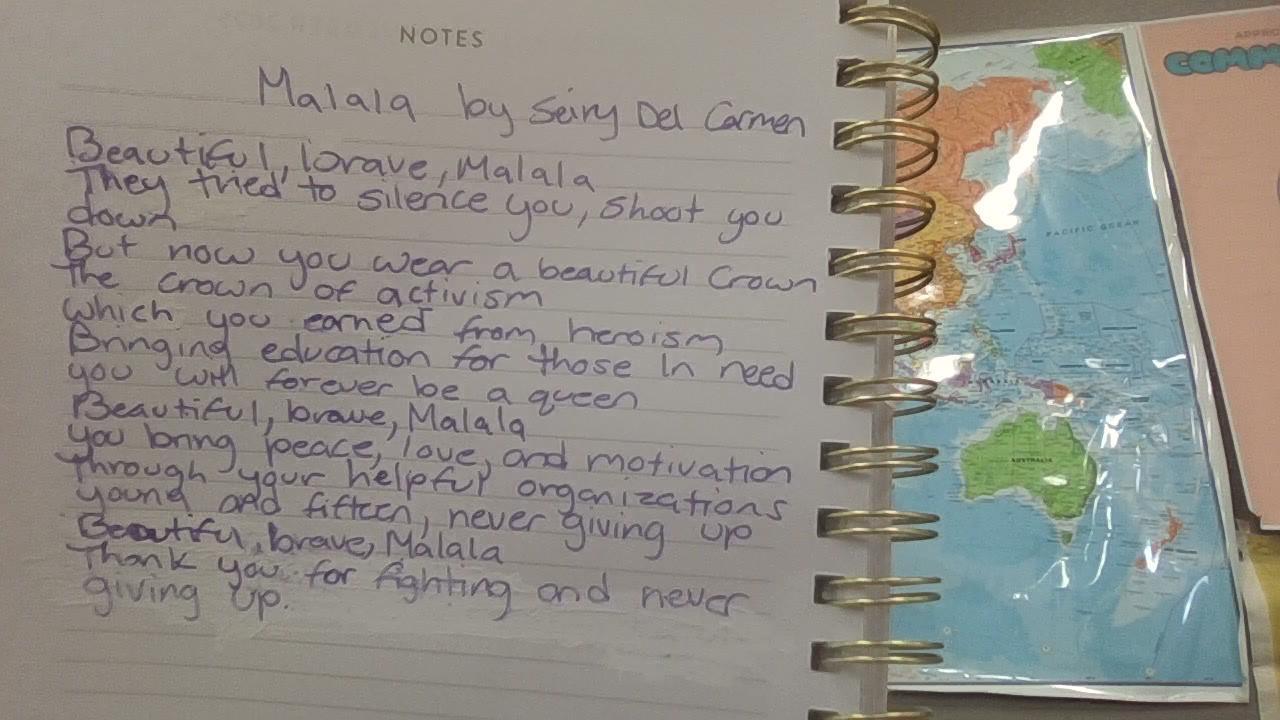 NOTES
Malala by Seiry Del Carmen
Beautiful, brave, Malala
They tried to silence you, shoot you
down
But now you wear a beautiful Crown
The crown of activism
which you earned from heroism
Bringing education for those In need
you will forever be a queen
Beautiful, brave, Malala
you bring peace, love, and motivation
Through your helpful organizations
young and fifteen, never giving up
Beautful, brave, Malala
Thank you for fighting and never
giving up.
PACIFIC OCEAN
AUSTRALIA